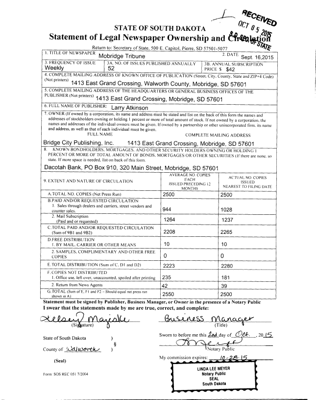 RECEIVED
OCT 05 2015
STATE OF SOUTH DAKOTA
Statement of Legal Newspaper Ownership and Circulation
Return to: Secretary of State, 500 E. Capitol, Pierre, SD 57501-5077
1. TITLE OF NEWSPAPER Mobridge Tribune
2. DATE Sept. 16, 2015
3. FREQUENCY OF ISSUE Weekly
3A. NO. OF ISSUES PUBLISHED ANNUALLY 52
3B. ANNUAL SUBSCRIPTION PRICE $ $42
4. COMPLETE MAILING ADDRESS OF KNOWN OFFICE OF PUBLICATION (Street, City, County, State and ZIP+4 Code) (Not printers)
1413 East Grand Crossing, Walworth County, Mobridge, SD 57601
5. COMPLETE MAILING ADDRESS OF THE HEADQUARTERS OR GENERAL BUSINESS OFFICES OF THE PUBLISHER (Not printers)
1413 East Grand Crossing, Mobridge, SD 57601
6. FULL NAME OF PUBLISHER: Larry Atkinson
7. OWNER (If owned by a corporation, its name and address must be stated and also list on the back of this form the names and
addresses of stockholders owning or holding 1 percent or more of total amount of stock. If not owned by a corporation, the
names and addresses of the individual owners must be given. If owned by a partnership or other unincorporated firm, its name
and address, as well as that of each individual must be given.
FULL NAME
COMPLETE MAILING ADDRESS
Bridge City Publishing, Inc. 1413 East Grand Crossing, Mobridge, SD 57601
8. KNOWN BONDHOLDERS, MORTGAGES, AND OTHER SECURITY HOLDERS OWNING OR HOLDING 1
PERCENT OR MORE OF TOTAL AMOUNT OF BONDS, MORTGAGES OR OTHER SECURITIES (If there are none, so
state. If more space is needed, list on back of this form.
Dacotah Bank, PO Box 910, 320 Main Street, Mobridge, SD 57601
9. EXTENT AND NATURE OF CIRCULATION
AVERAGE NO. COPIES EACH ISSUED PRECEDING 12 MONTHS
ACTUAL NO. COPIES ISSUED NEAREST TO FILING DATE
A. TOTAL NO. COPIES (Net Press Run) 2500 2500
B. PAID AND/OR REQUESTED CIRCULATION
1. Sales through dealers and carriers, street vendors and counter sales. 944 1028
2. Mail Subscription (Paid and or requested) 1264 1237
C. TOTAL PAID AND/OR REQUESTED CIRCULATION (Sum of 9B1 and 9B2) 2208 2265
D. FREE DISTRIBUTION
1. BY MAIL, CARRIER OR OTHER MEANS 10 10
2. SAMPLES, COMPLIMENTARY AND OTHER FREE COPIES 0 0
E. TOTAL DISTRIBUTION (Sum of C, D1 and D2) 2223 2280
F. COPIES NOT DISTRIBUTED
1. Office use, left over, unaccounted, spoiled after printing 235 181
2. Return from News Agents 42 39
G. TOTAL (Sum of E, F1 and F2 - Should equal net press run shown in A) 2550 2500
Statement must be signed by Publisher, Business Manager, or Owner in the presence of a Notary Public
I swear that the statements made by me are true, correct, and complete:
Business Manager
(Signature)
(Title)
State of South Dakota
County of Walworth
Sworn to before me this 2nd day of Oct. 2015
Notary Public
My commission expires: 10-28-15
(Seal)
LINDA LEE MEYER
Notary Public
SEAL
South Dakota
Form: SOS REC 051 7/2004